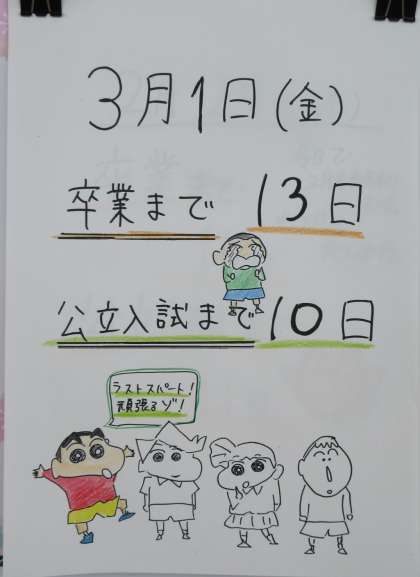 3月1日(金)
卒業まで 13日
公立入試まで10日
ラストスパート!
頑張るゾ!